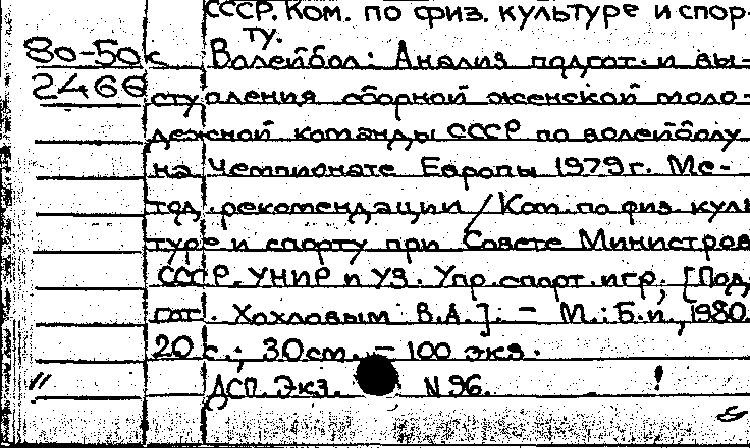 СССР. Ком. по физ. культуре и спор-
ту.
80-50к Волейбол: Анализ подгот. и вы-
2466 ступления сборной женской моло-
дежной команды СССР по волейболу
на Чемпионате Европы 1979 г. Ме-
тод. рекомендации / Ком. по физ. куль
туре и спорту при Совете Министров
СССР. УНИР и УЗ. Упр. спорт. игр. [Под
гот. Хохловым В.А.]. - М.: Б.и., 1980.
20 с.; 30 см. - 100 экз.
" ДСП. Экз. N 96. !